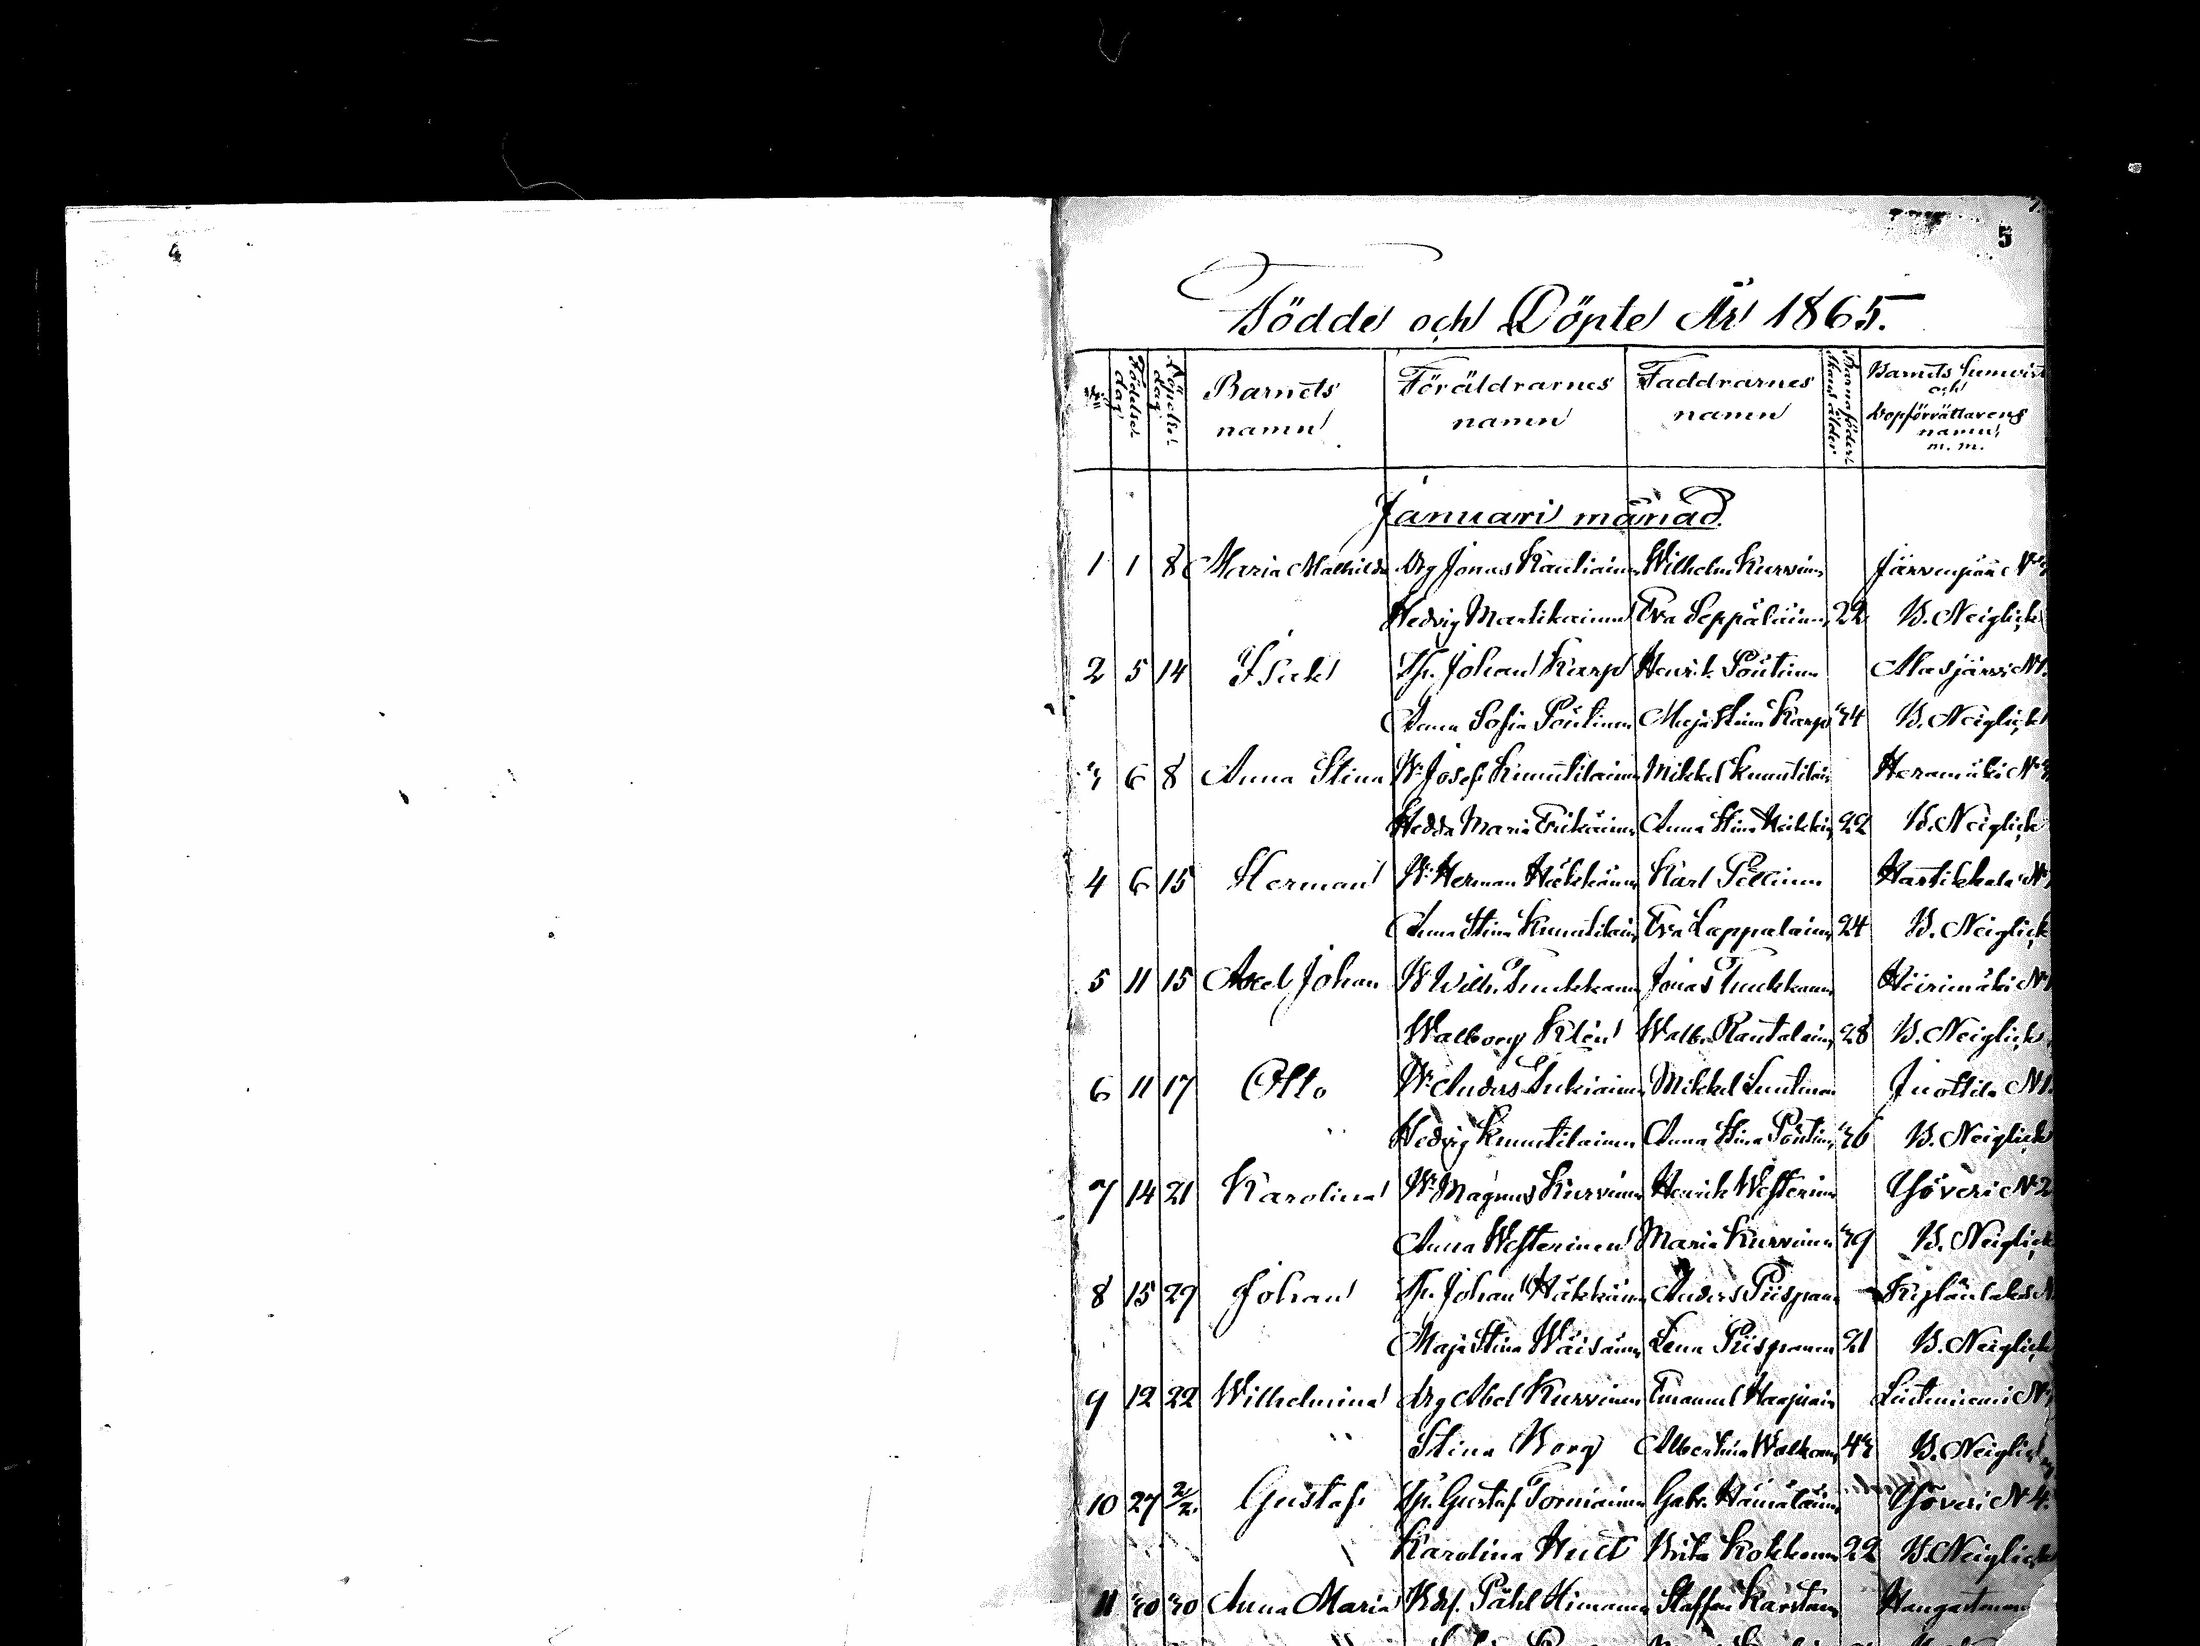 4
5
Födde och Döpte År 1865.
N:o Födelsedag Döpelsedag Barnets namn Föräldrarnes namn Faddrarnes namn Barnaföderskans ålder Barnets hemvist och Dopförrättarens namn, m. m.
Januari månad.
1 1 8 Maria Mathilda Drg Jonas Rautiainen Wilhelm Kurvinen Järvenpää N
Hedvig Martikainen Eva Seppäläinen 22 B. Neiglick
2 5 14 Isak Tp. Johan Karp Henrik Poutinen Alasjärvi N 1.
Anna Sofia Poutinen Maja Stina Karp 34 B. Neiglick
3 6 8 Anna Stina B. Josef Knuutilainen Mikkel Knuutilain Heramäki N
Hedda Maria Erikäinen Anna Stina Heikkin 22 B. Neiglick
4 6 15 Herman B. Herman Häkkinen Karl Pellinen Hartikkala N
Anna Stina Knuutilain Eva Lappalainen 24 B. Neiglick
5 11 15 Axel Johan B. Wilh. Tuukkanen Jonas Tuukkanen Hiirimäki N
Walborg Klén Walb. Rautalain 28 B. Neiglick
6 11 17 Otto B. Anders Jukiainen Mikkel Luutinen Juottila N 1.
Hedvig Knuutilainen Anna Stina Poutin 36 B. Neiglick
7 14 21 Karolina B. Magnus Kurvinen Henrik Westerinen Yöveri N 2
Anna Westerinen Maria Kurvinen 39 B. Neiglick
8 15 29 Johan Tp. Johan Häkkinen Anders Piispanen Kylänlaks N
Maja Stina Wäisänen Lena Piispanen 21 B. Neiglick
9 12 22 Wilhelmina Drg Abel Kurvinen Emanuel Haapiain Lintuniemi N
Stina Borg Albertina Walkonen 43 B. Neiglick
10 27 2/2. Gustaf Tp. Gustaf Torniainen Gabr. Hämäläinen Yöveri N 4.
Karolina Huct Brita Kokkonen 22 B. Neiglick
11 30 30 Anna Maria Bdf. Påhl Himanen Staffan Karstunen Hangastenmaa